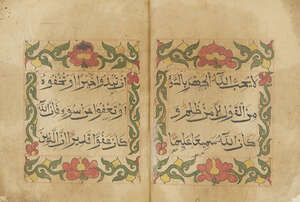 لا يحب الله الجهر بالسو
من القول الا من ظلم و
كان الله سميعا عليما
ان تبدوا خيرا او تخفوه
او تعفوا عن سوء فان الله
كان عفوا قديرا ان الذين